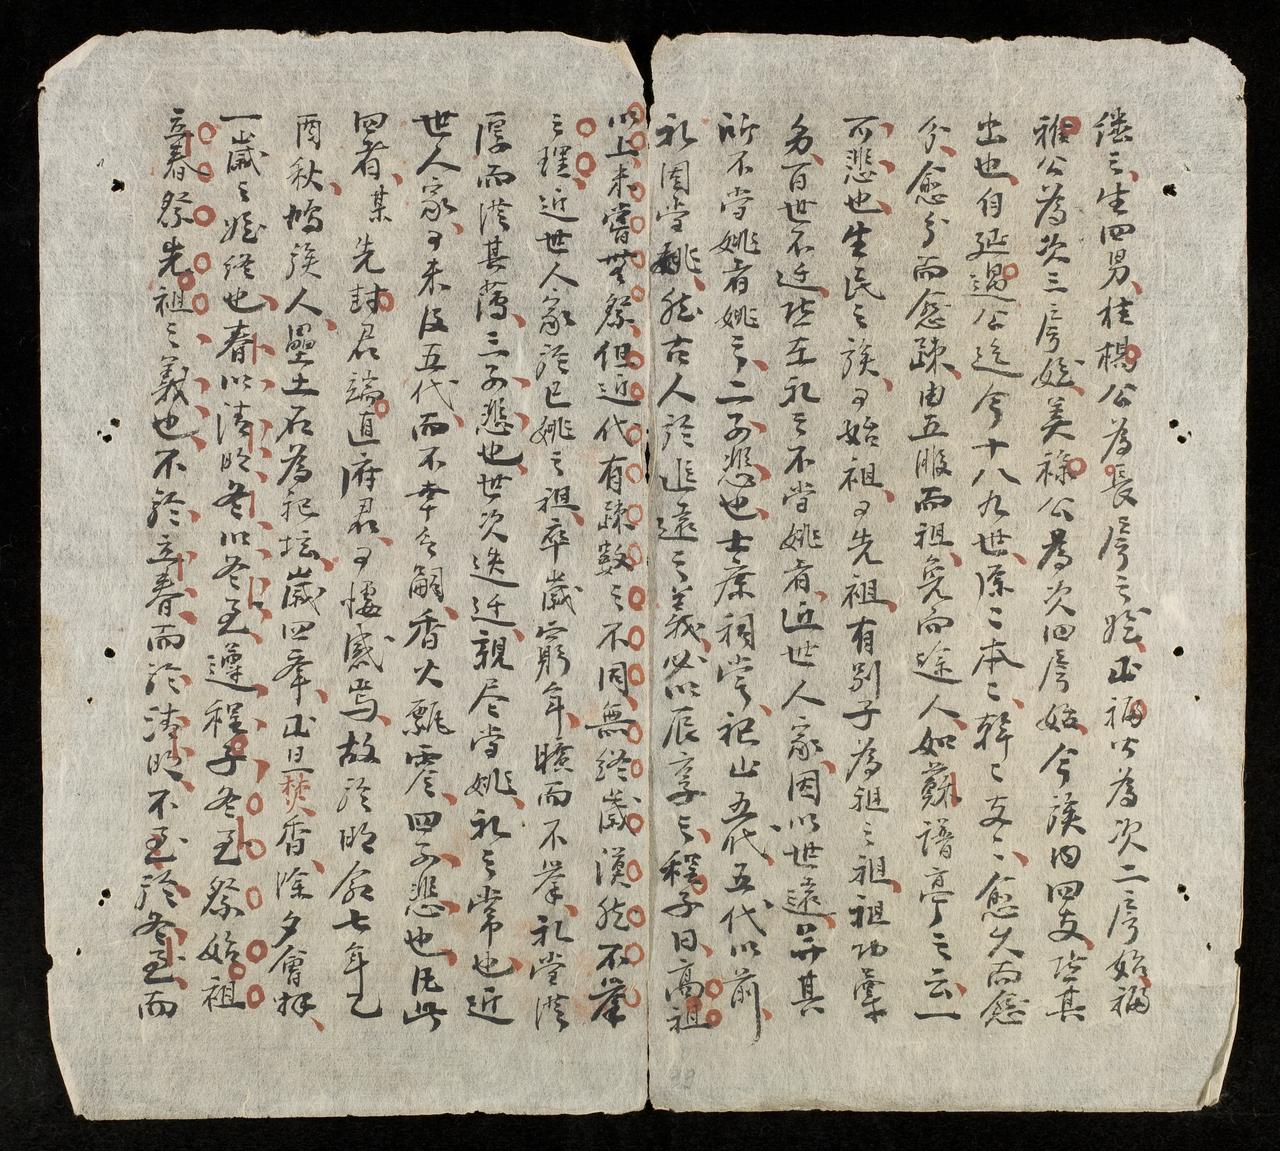 繼之生四男桂楊公為長房之始正福公為次二房始福
雅公為次三房始美祿公為次四房始今族內四支皆其
出也自延過公迄今十八九世源二本二幹二支二愈大而愈
分愈分而愈疎由五服而祖免而途人如蘇譜亭之云一
可悲也生民之族有始祖有先祖有別子為祖之祖祖功宗
為百世不迁者在礼之不当姚者近世人家因以世遠並其
所不当姚者姚之二可悲也士庶祠堂祀止五代五代以前
礼固当姚然古人於追遠之義必以辰享之程子曰高祖
以上未嘗無祭但近代有疎数之不同無終歲漠然不舉
之理近世人家於已姚之祖卒歲窮年曠而不舉礼堂從
厚而從其薄三可悲也世次迭迁親尽当姚礼之常也近
世人家有未及五代而不幸乏嗣香火飄零四可悲也凡此
四者某先封君端直府君有慨感焉故於明倉七年乙
酉秋鳩族人壘土石為祀坛歲四舉正旦焚香除夕會拜
一歲之始終也春以清明冬以冬至遵程子冬至祭始祖
立春祭先祖之義也不於立春而於清明不至於冬至而